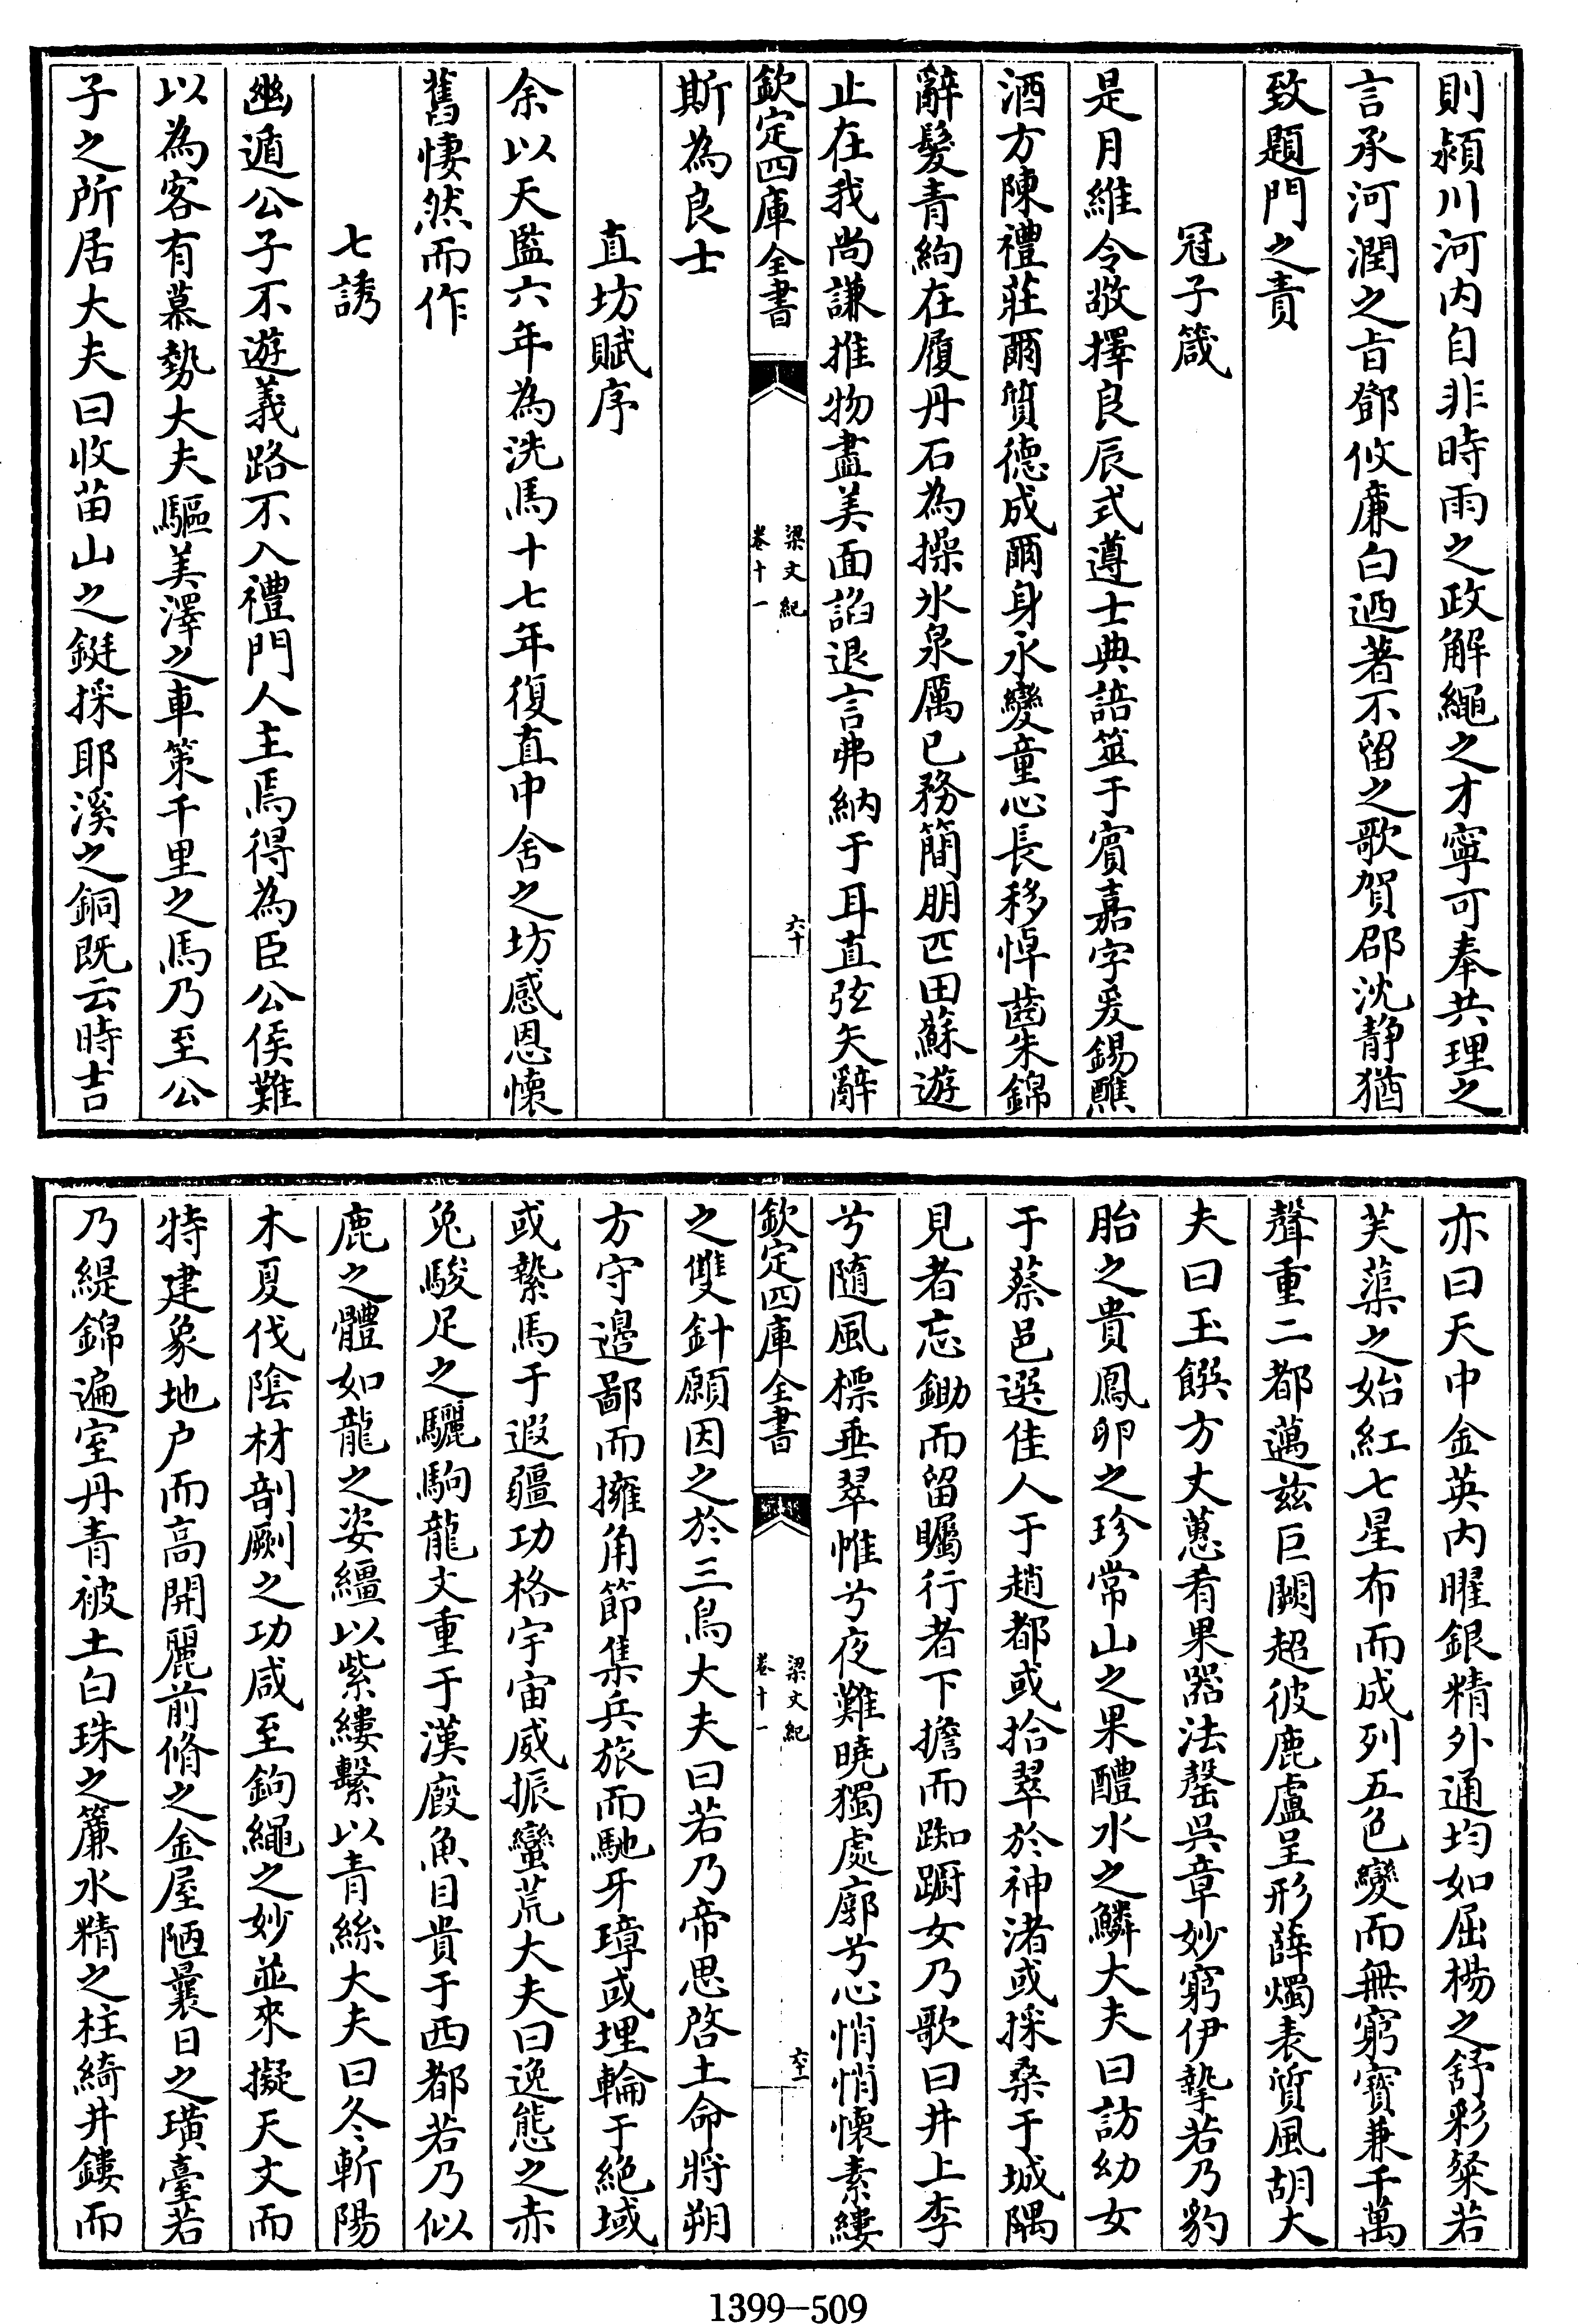 則潁川河内自非時雨之政解繩之才寧可奉共理之
言承河潤之㫖鄧攸亷白迺著不留之歌賀邵沈静猶
致題門之責
冠子箴
是月維令敬擇良辰式遵士典諮筮于賓嘉字爰錫醮
酒方陳禮莊爾質德成爾身永變童心長移悼齒朱錦
辭髮青絇在履丹石為操氷泉厲已務簡朋匹田蘇遊
止在我尚謙推物盡美面諂退言弗納于耳直弦矢辭
欽定四庫全書
梁文紀
卷十一
六十
斯為良士
直坊賦序
余以天監六年為洗馬十七年復直中舍之坊感恩懐
舊悽然而作
七誘
幽遁公子不遊義路不入禮門人主焉得為臣公侯難
以為客有慕勢大夫驅美澤之車策千里之馬乃至公
子之所居大夫曰收苗山之鋌採耶溪之銅既云時吉
亦曰天中金英内曜銀精外通均如屈楊之舒彩粲若
芙蕖之始紅七星布而成列五色變而無窮寳兼千萬
聲重二都邁兹巨闕超彼鹿盧呈形薛燭表質風胡大
夫曰玉饌方丈蔥肴果器法罄呉章妙窮伊摯若乃豹
胎之貴鳳卵之珍常山之果醴水之鱗大夫曰訪幼女
于蔡邑選佳人于趙都或拾翠於神渚或採桑于城隅
見者忘鋤而留矚行者下擔而踟蹰女乃歌曰井上李
兮隨風標垂翠帷兮夜難曉獨處廓兮心悄悄懐素縷
欽定四庫全書
梁文紀
卷十一
六十一
之雙針願因之於三鳥大夫曰若乃帝思啓土命將朔
方守邊鄙而擁角節集兵旅而馳牙璋或埋輪于絶域
或縶馬于遐疆功格宇宙威振蠻荒大夫曰逸態之赤
兔駿足之驪駒龍文重于漢廄魚目貴于西都若乃似
鹿之體如龍之姿繮以紫縷繫以青絲大夫曰冬斬陽
木夏伐陰材剖劂之功咸至鉤繩之妙並來擬天文而
特建象地户而高開麗前脩之金屋陋曩日之璜臺若
乃緹錦遍室丹青被土白珠之簾水精之柱綺井鏤而
1399—509